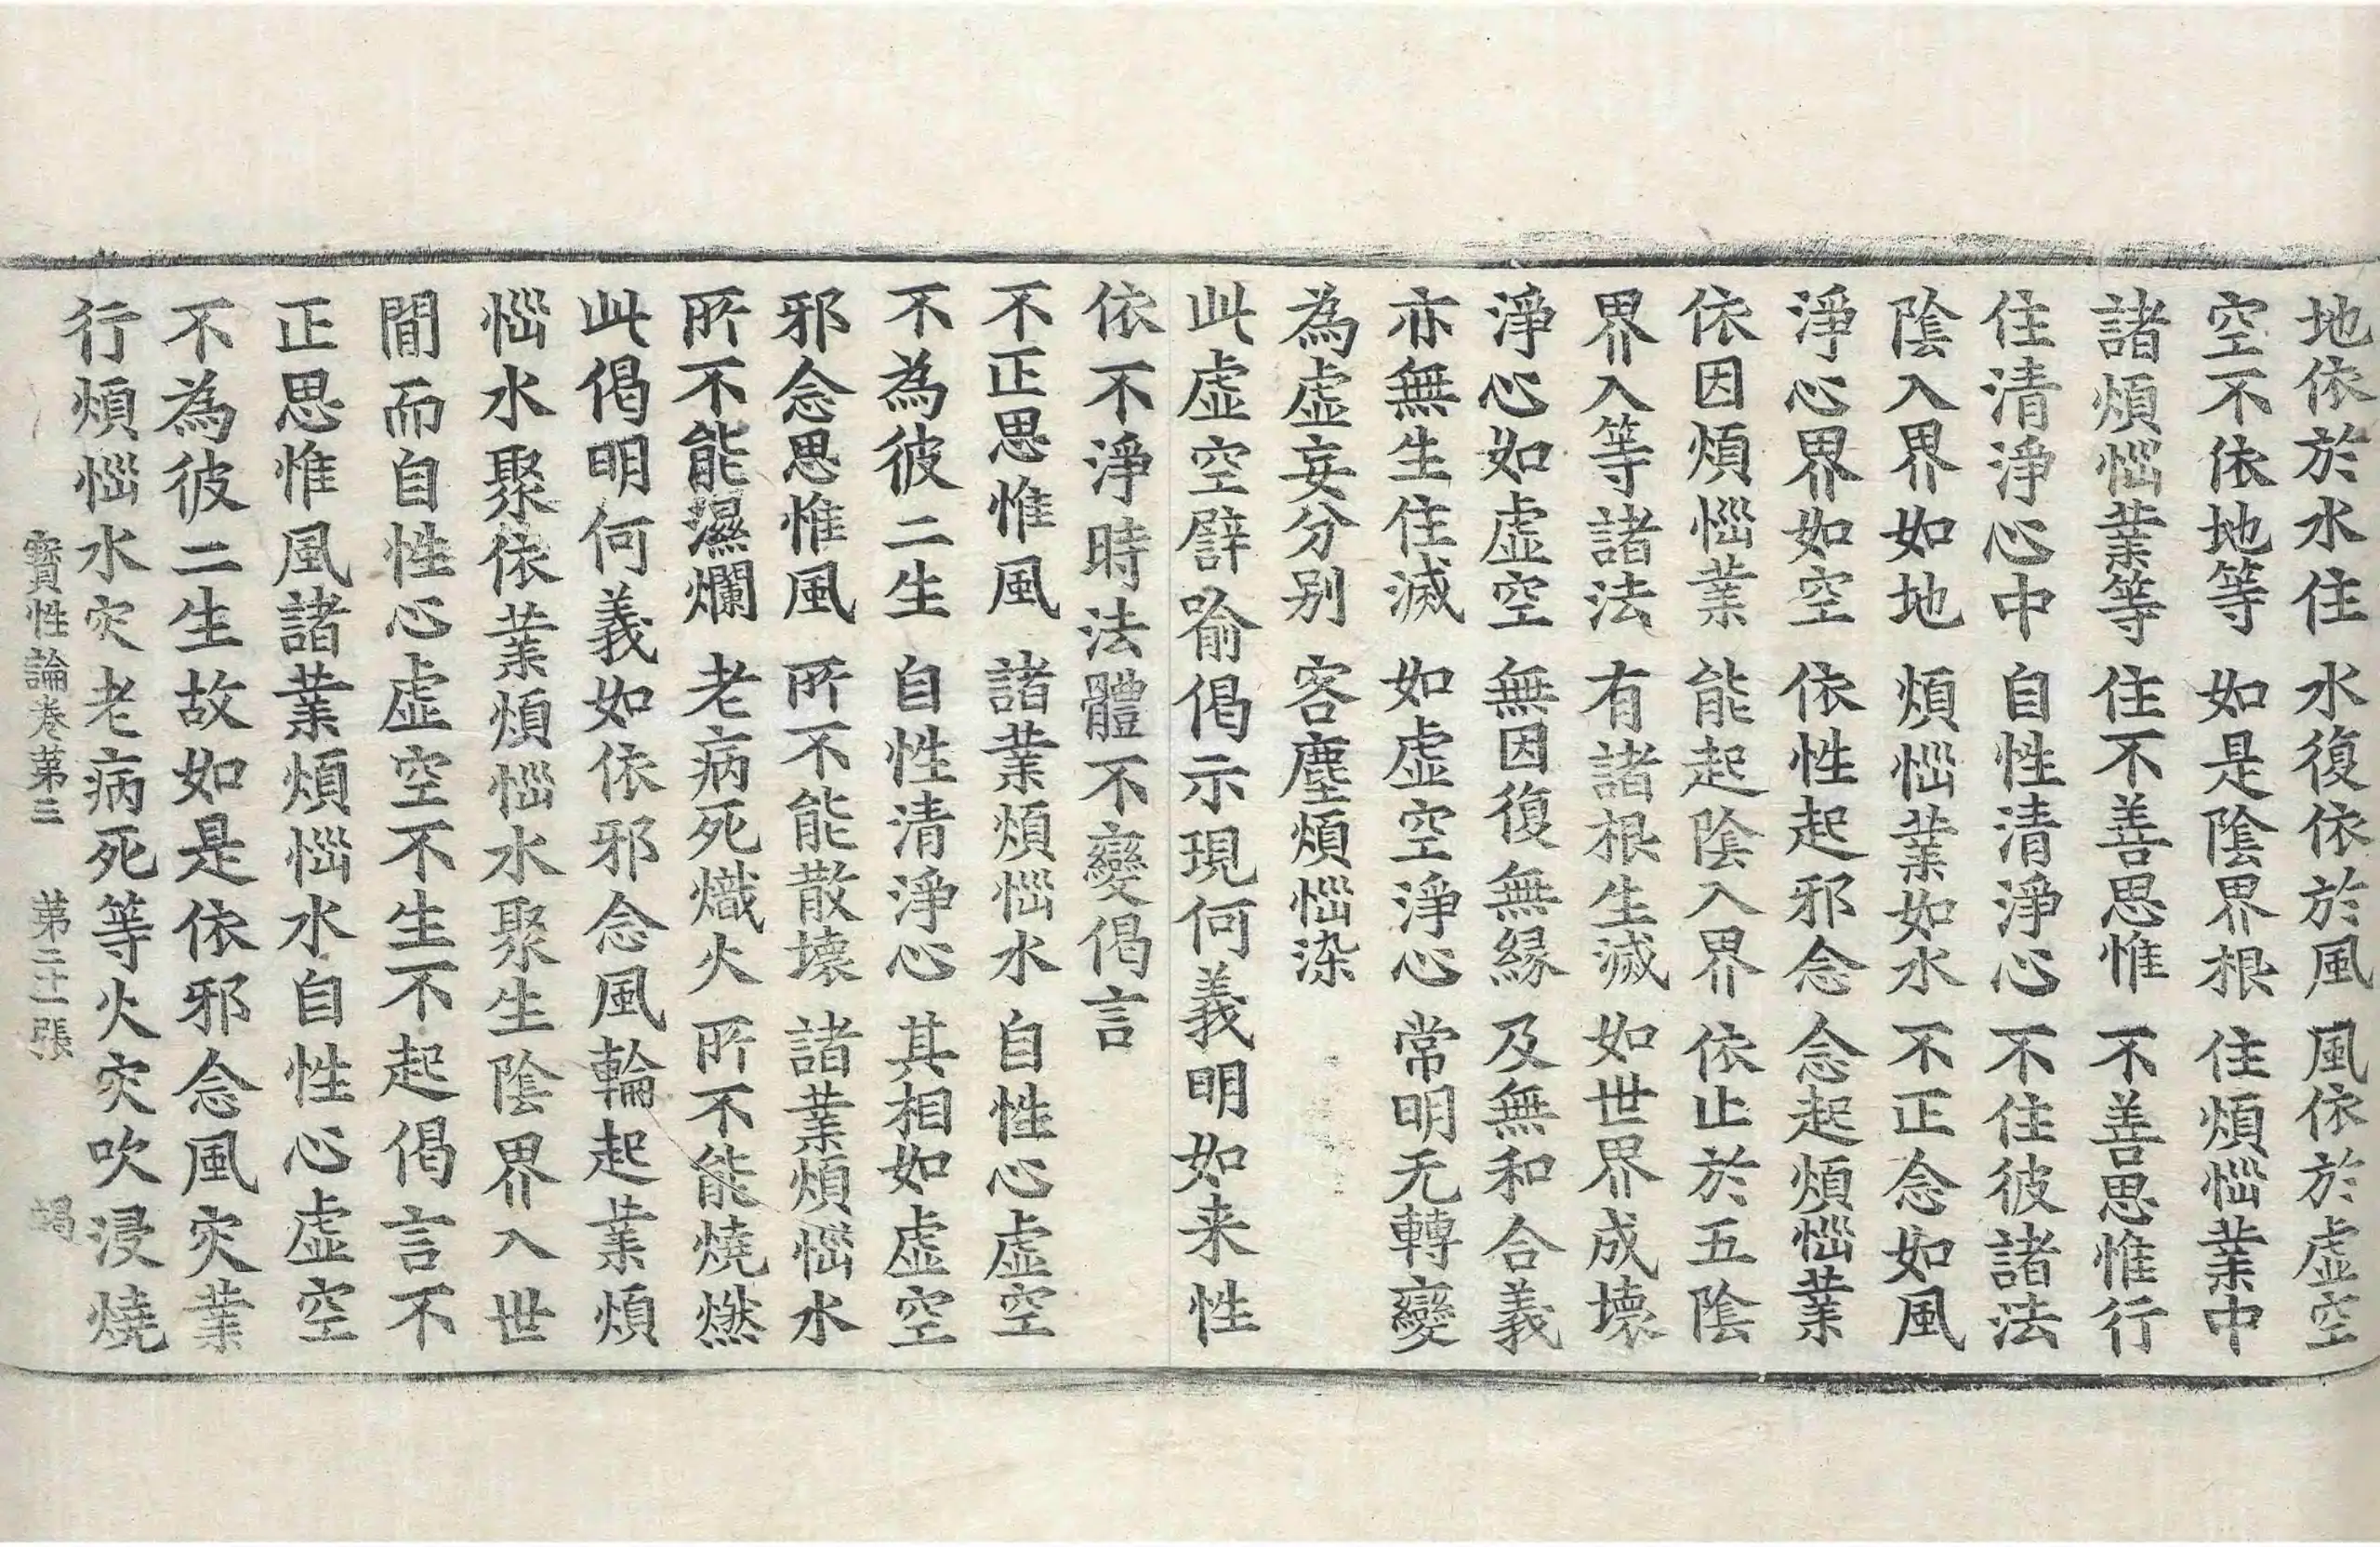 地依於水住　水復依於風　風依於虛空
空不依地等　如是陰界根　住煩惱業中
諸煩惱業等　住不善思惟　不善思惟行
住清淨心中　自性清淨心　不住彼諸法
陰入界如地　煩惱業如水　不正念如風
淨心界如空　依性起邪念　念起煩惱業
依因煩惱業　能起陰入界　依止於五陰
界入等諸法　有諸根生滅　如世界成壞
淨心如虛空　無因復無緣　及無和合義
亦無生住滅　如虛空淨心　常明无轉變
為虛妄分別　客塵煩惱染
此虛空譬喻偈示現何義明如来性
依不淨時法體不變偈言
不正思惟風　諸業煩惱水　自性心虛空
不為彼二生　自性清淨心　其相如虛空
邪念思惟風　所不能散壞　諸業煩惱水
所不能濕爛　老病死熾火　所不能燒燃
此偈明何義如依邪念風輪起業煩
惱水聚依業煩惱水聚生陰界入世
間而自性心虛空不生不起偈言不
正思惟風諸業煩惱水自性心虛空
不為彼二生故如是依邪念風灾業
行煩惱水灾老病死等火灾吹浸燒
寶性論卷第三　第二十一張　竭